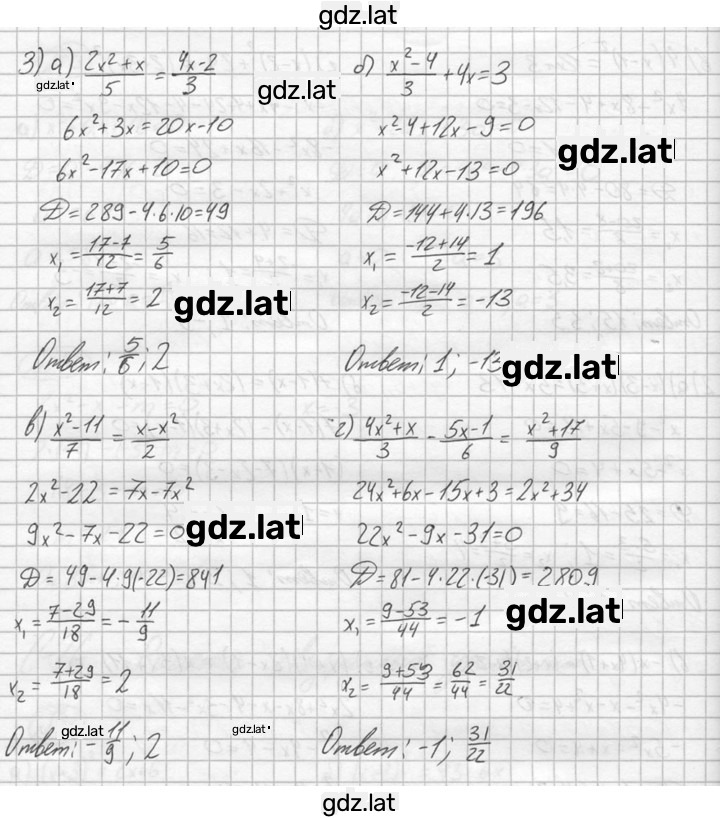 gdz.lat
3) а) (2x²+x)/5 = (4x-2)/3
gdz.lat
6x²+3x=20x-10
6x²-17x+10=0
D=289-4.6.10=49
x₁=(17-7)/12=5/6
x₂=(17+7)/12=2
gdz.lat
Ответ: 5/6; 2
б) (x²-4)/3+4x=3
gdz.lat
x²-4+12x-9=0
gdz.lat
x²+12x-13=0
D=144+4.13=196
x₁=(-12+14)/2=1
x₂=(-12-14)/2=-13
Ответ: 1; -13
gdz.lat
в) (x²-11)/7=(x-x²)/2
2x²-22=7x-7x²
9x²-7x-22=0
gdz.lat
D=49-4.9(-22)=841
x₁=(7-29)/18=-11/9
x₂=(7+29)/18=2
gdz.lat
Ответ: -11/9; 2
г) (4x²+x)/3-(5x-1)/6=(x²+17)/9
24x²+6x-15x+3=2x²+34
22x²-9x-31=0
D=81-4.22.(-31)=2809
gdz.lat
x₁=(9-53)/44=-1
x₂=(9+53)/44=62/44=31/22
gdz.lat
Ответ: -1; 31/22
gdz.lat